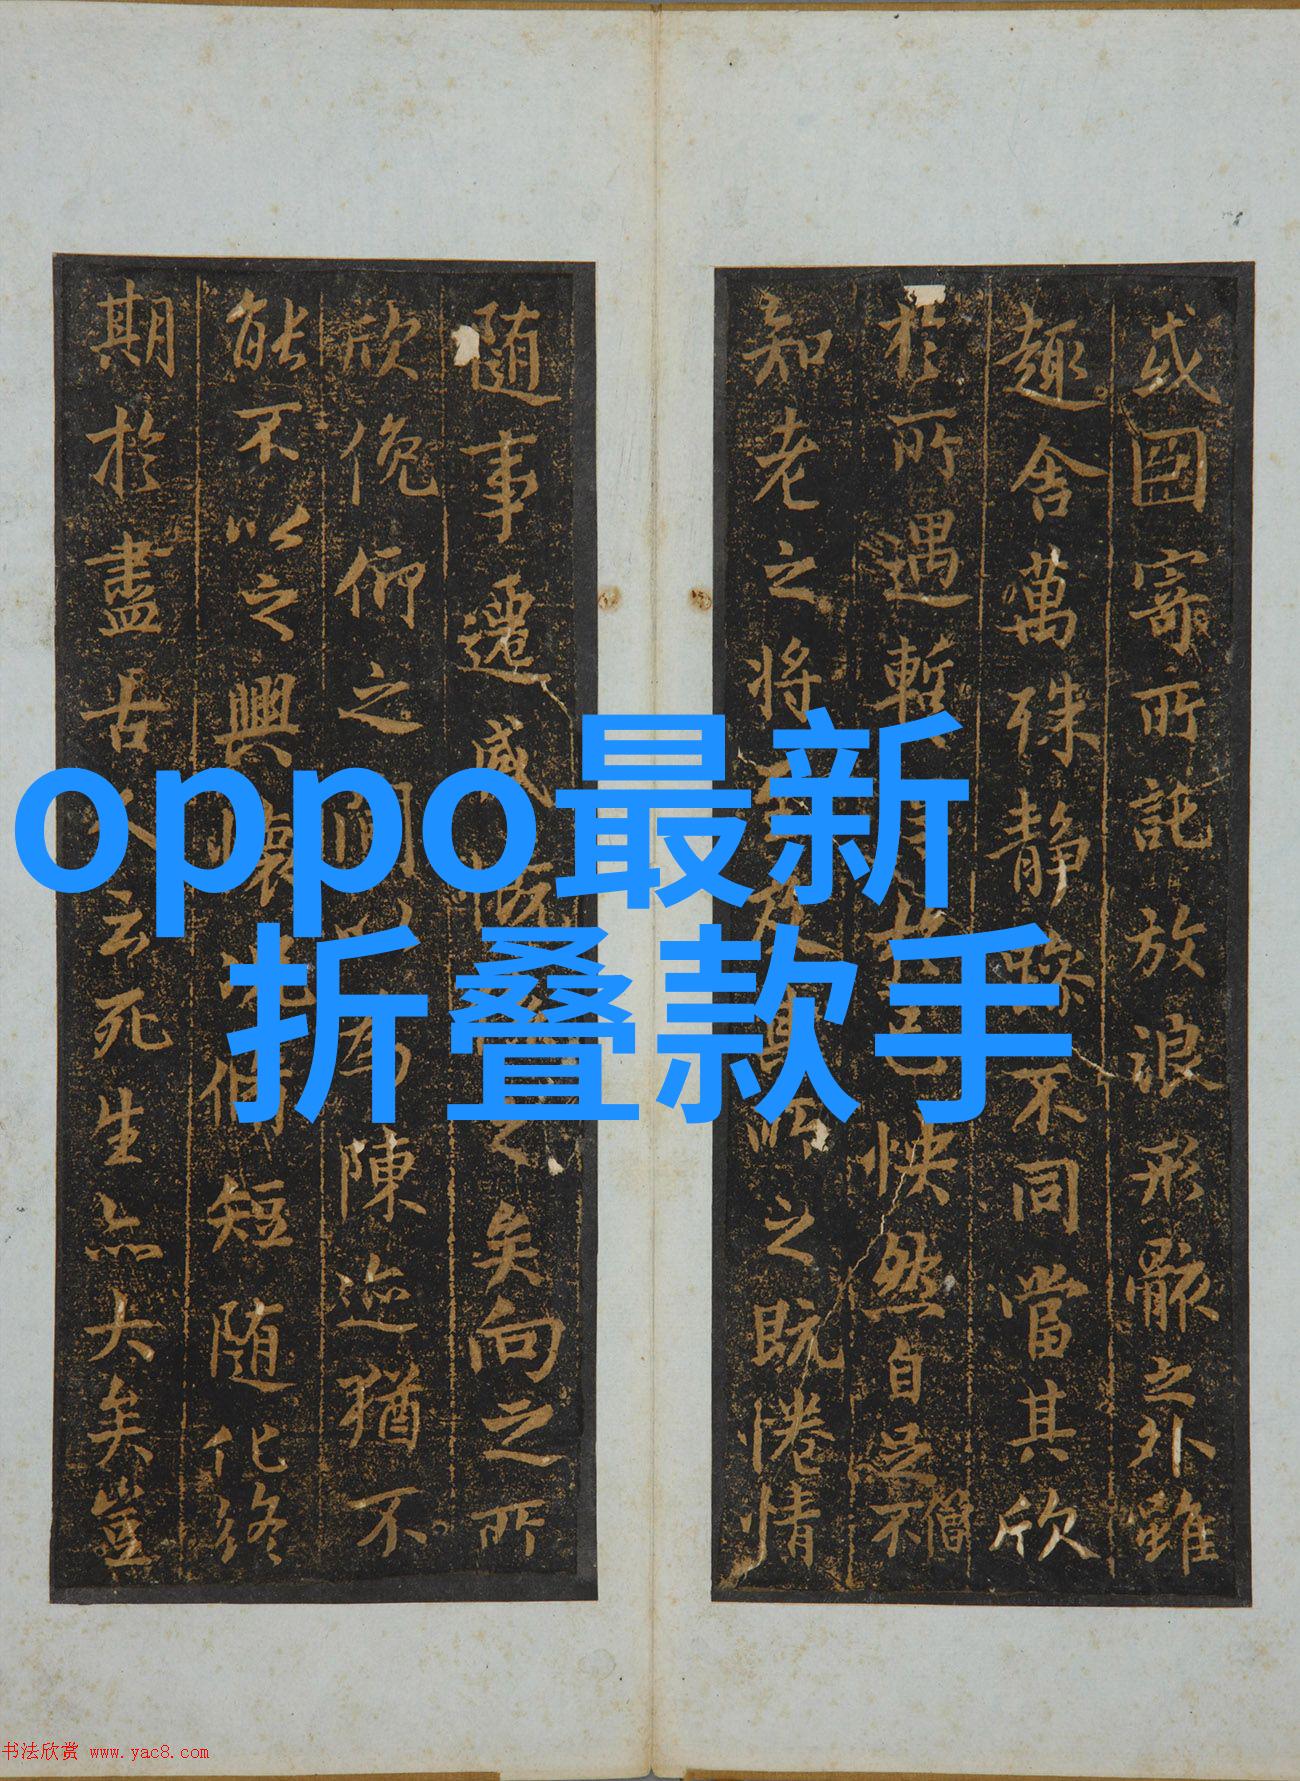 oppo最新
折叠款手
或因寄所託放浪形骸之外雖
趣舍萬殊静躁不同當其欣
於所遇暫得於己怏然自足不
僧
知老之將至及其所之既惓情
隨事遷感慨係之矣向之所
欣俛仰之間以為陳迹猶不
能不以之興懷況脩短隨化終
期於盡古人云死生亦大矣豈
书法欣赏 www.yac8.com